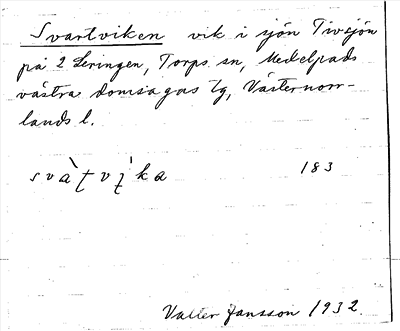 Svartviken vik i sjön Tivsjön
på 2 Leringen, Torps sn, Medelpads
västra domsagas tg, Västernorr-
lands l.
svàṭvị̀ka 183
Valter Jansson 1932.